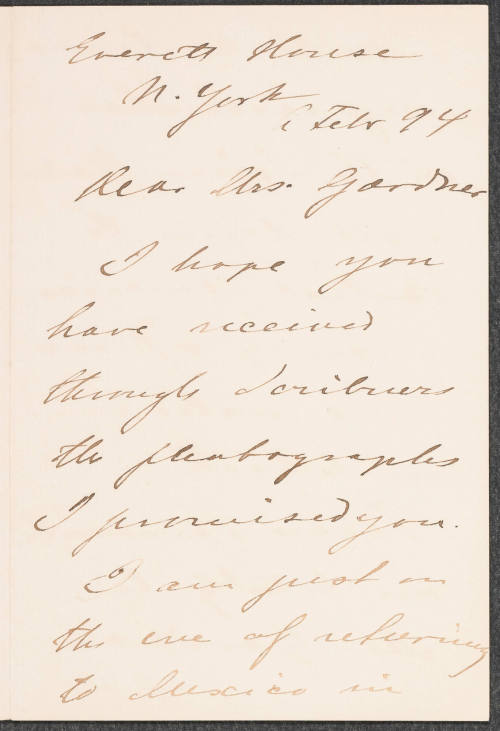 Everett House
N. York
6 Feb 94
Dear Mrs. Gardner
I hope you
have received
through Scribners
the photographs
I promised you.
I am just on
the eve of returning
to Mexico in